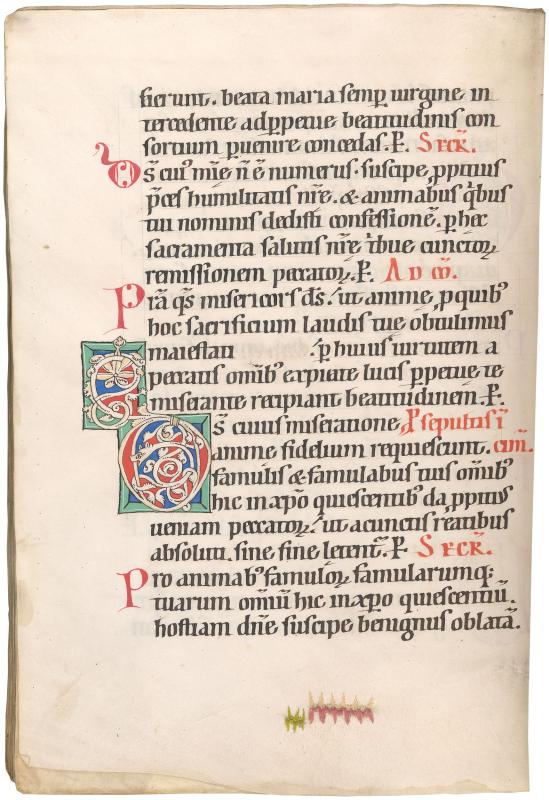 fierunt. beata maria semp̱ uirgine in
tercedente adp̱petue beatitudinis con
sortium p̱uenire concedas. P̱. SECR̄.
Ds̄ cui᷒ mīe n̄ ē numerus. suscipe p̱pitius
p̄ces humilitatis nr̄e. & animabus q̇bus
tui nominis dedisti confessionē. p̱ hec
sacramenta salutis nr̄e t̄bue cunctoꝝ
remissionem peccatoꝝ. P̱. AD CŌ.
Prā q̄s misericors ds̄. ut anime p̱ quib᷒
hoc sacrificium laudis tue obtulimus
maiestati p̱ huius uirtutem a
peccatis omīb᷒ expiate lucis p̱petue te
miserante recipiant beatitudinem. P̱.
Ds̄ cuius miseratione p̱ sepultis ī
anime fidelium requiescunt. cim̄.
famulis & famulabus tuis omīb᷒
hic in xp̄o quiescentib᷒ da p̱pitius
ueniam peccatoꝝ. ut acunctis reatibus
absoluti. sine fine letent᷑. P̱. SECR̄.
Pro animab᷒ famuloꝝ famularumq;
tuarum omīū hic in xp̄o quiescentiū.
hostiam dn̄e suscipe benignus oblatā.